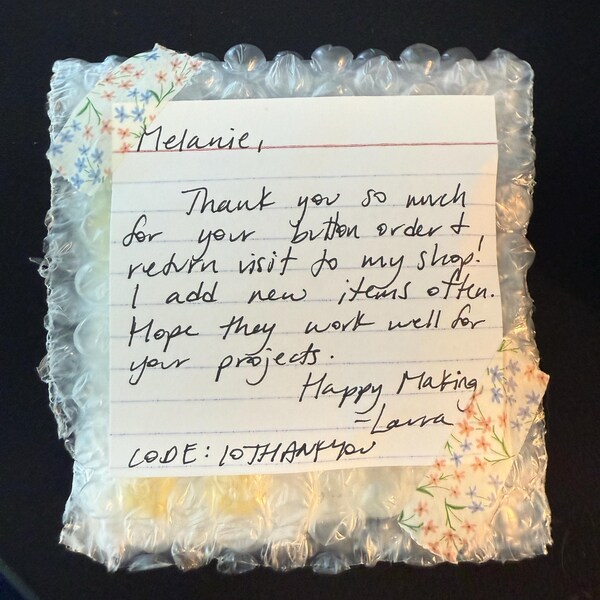 Melanie,
Thank you so much
for your button order &
return visit to my shop!
I add new items often.
Hope they work well for
your projects.
Happy Making
-Laura
CODE: 10THANKYOU